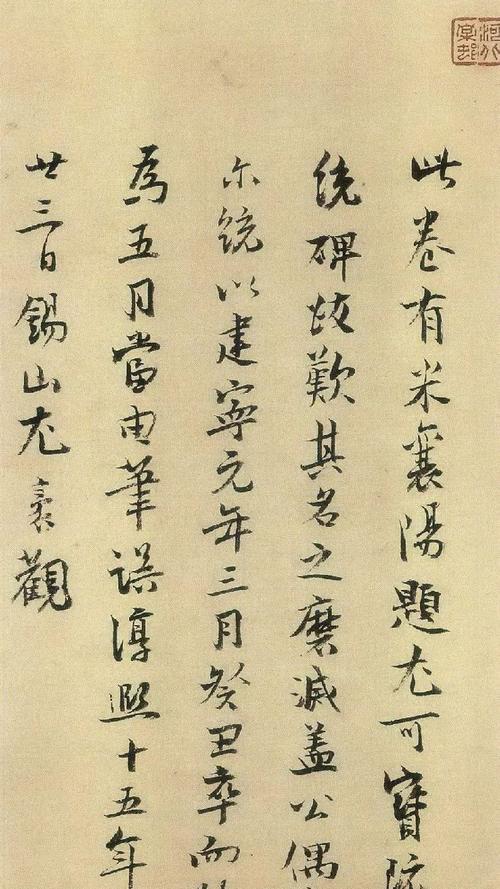 此卷有米襄陽題尤可寶
統碑跋歎其名之磨滅蓋公偶
尒統以建寧元年三月癸丑卒而
為五月當由筆誤淳熙十五年
廿三日錫山尤袤觀
河北棠邨